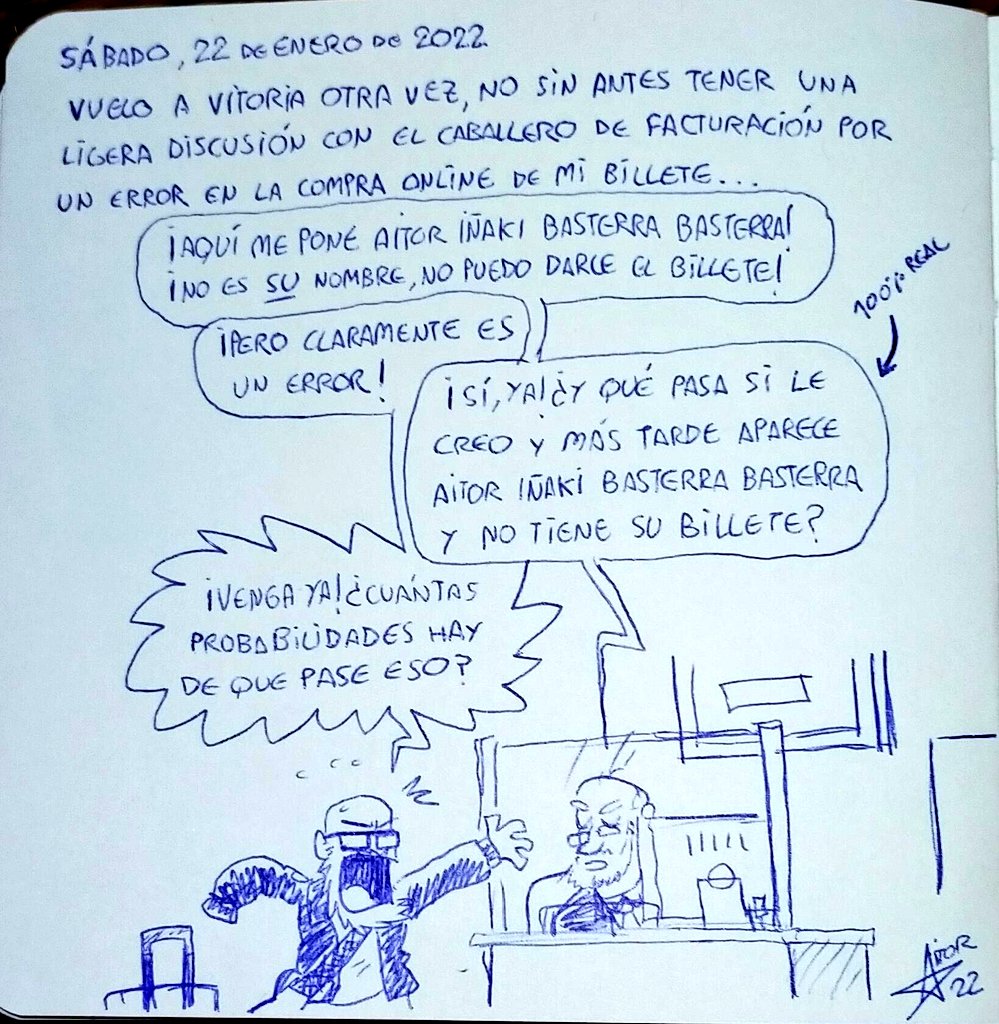 SÁBADO, 22 DE ENERO DE 2022
VUELO A VITORIA OTRA VEZ, NO SIN ANTES TENER UNA
LIGERA DISCUSIÓN CON EL CABALLERO DE FACTURACIÓN POR
UN ERROR EN LA COMPRA ONLINE DE MI BILLETE...
¡AQUÍ ME PONE AITOR IÑAKI BASTERRA BASTERRA!
¡NO ES SU NOMBRE, NO PUEDO DARLE EL BILLETE!
100% REAL
¡PERO CLARAMENTE ES
UN ERROR!
¡SÍ, YA! ¿Y QUÉ PASA SI LE
CREO Y MÁS TARDE APARECE
AITOR IÑAKI BASTERRA BASTERRA
Y NO TIENE SU BILLETE?
¡VENGA YA! ¿CUÁNTAS
PROBABILIDADES HAY
DE QUE PASE ESO?
AITOR
22